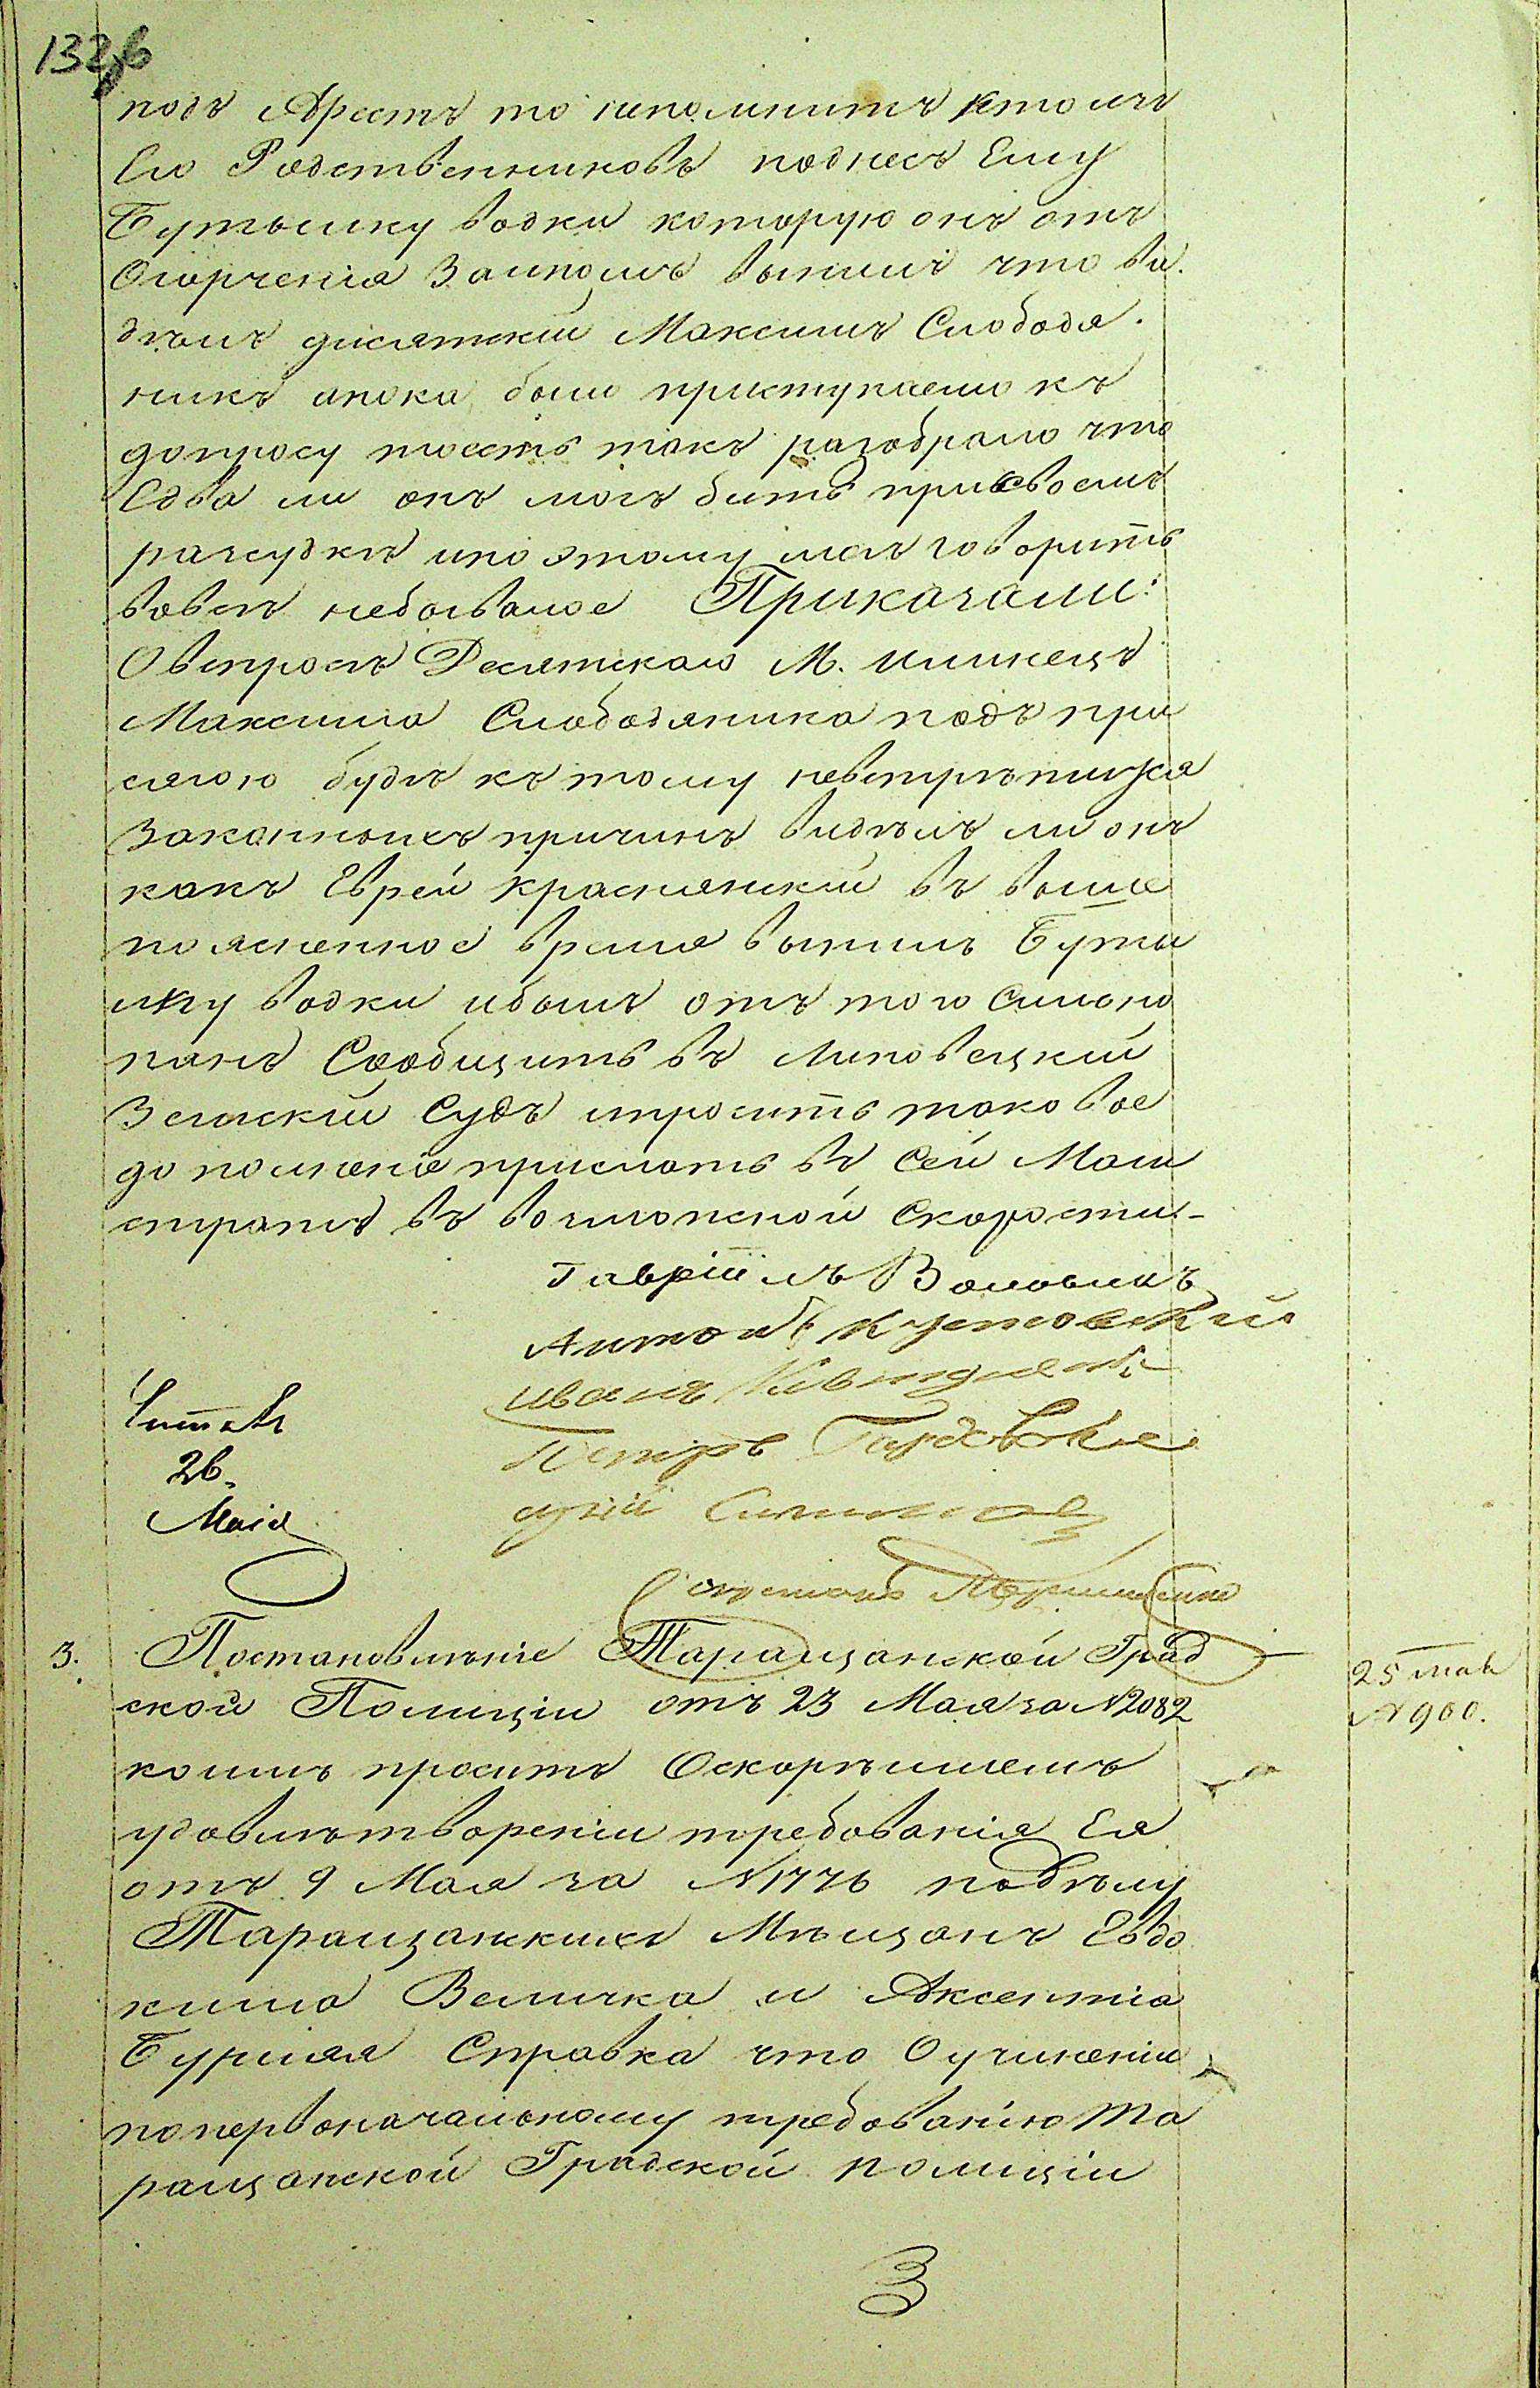 132 б
подъ Арестъ то непомнитъ кто изъ
Его Родственниковъ поднесъ Ему
Бутылку водки которую онъ отъ
Огорченія Залпомъ выпилъ что ви-
дѣлъ дисятскій Максимъ Слободя-
никъ апока было приступлено къ
допросу тоесть такъ разобрало что
Едва ли онъ могъ быть присвоемъ
разсудкѣ ипоэтому могъ говорить
вовсѣ небывалое Приказали:
Овспросѣ Десятскаго М. Илинецъ
Максима Слободяника подъ при
сягою будѣ къ тому невстрѣтится
Законныхъ причинъ видѣлъ ли онъ
какъ Еврей Краснянскій въ выше
поясненное время выпилъ Буты
лку водки ибылъ отъ того Сильно
пянъ Сообщить въ Липовецкій
Земскій Судъ ипросить таковое
дополненіе прислать въ Сей Маги
стратъ въ возможной Скорости-
Гавріилъ Воловикъ
Антонъ Кутковскій
Иванъ
Петръ
Читалъ
26.
Маія
3. Постановлѣніе Таращанской Град
ской Полиціи отъ 23 Мая за №2082
коимъ проситъ Оскорѣйшемъ
удовлѣтвореніи требованія Ея
отъ 9 Мая за №1776 подѣлу
Таращанскихъ Мѣщанъ Евдо
кима Величка и Аксентія
Бурлая Справка что Оучиненіи
попервоначальному требованію Та
ращанской Градской полиціи
25 мая
№ 900.